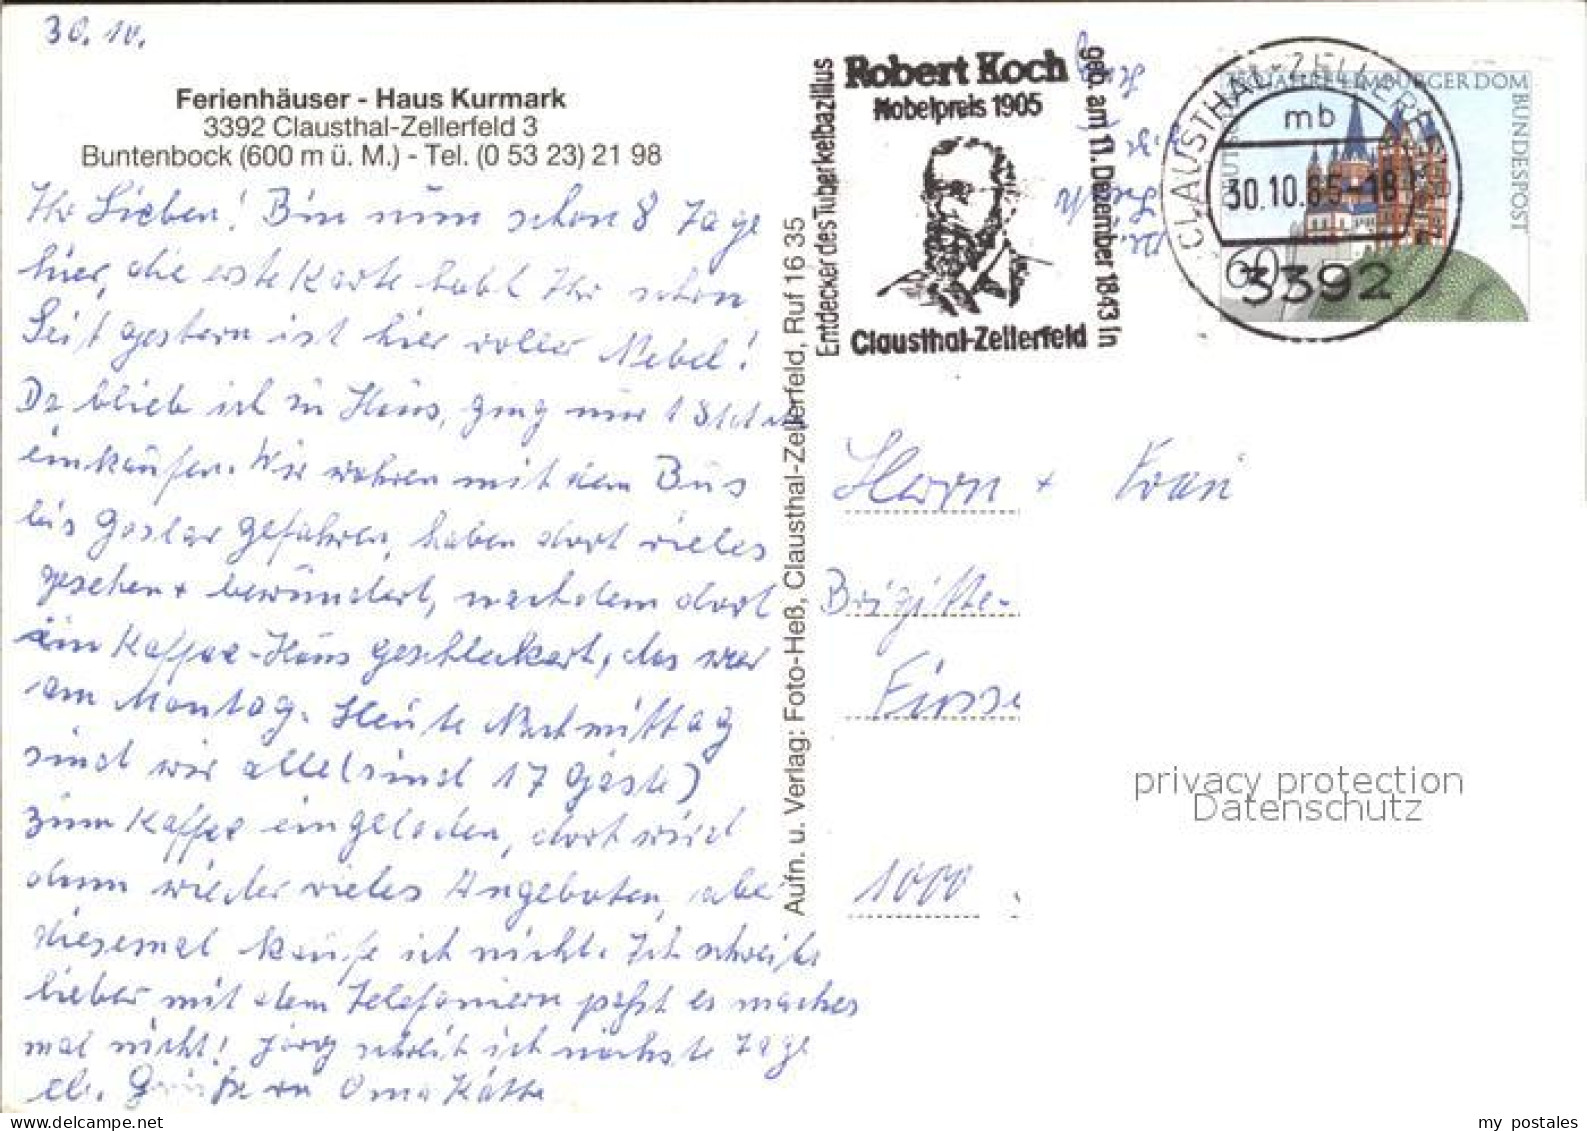 30.10.
Ferienhäuser - Haus Kurmark
3392 Clausthal-Zellerfeld 3
Buntenbock (600 m ü. M.) - Tel. (0 53 23) 21 98
Ihr Lieben! Bin nun schon 8 Tage
hier, die erste Karte habt Ihr schon
Seit gestern ist hier voller Nebel!
Da blieb ich in Haus, ging nur 1 Std
einkaufen. Wir waren mit dem Bus
bis Goslar gefahren, haben dort vieles
gesehen + bewundert, nachdem dort
ein Kaffee-Haus geschleckert, das war
am Montag. Heute Nachmittag
sind wir alle (sind 17 Gäste)
zum Kaffee eingeladen, dort wird
dann wieder vieles Angeboten, aber
diesemal kaufe ich nicht. Ich schreibe
lieber mit dem Telefonieren paßt es
mal nicht! Jörg schreib ich nächste Tage
Grüße von Oma Käthe
Aufn. u. Verlag: Foto-Heß, Clausthal-Zellerfeld, Ruf 16 35
Entdecker des Tuberkelbazillus
Robert Koch
Nobelpreis 1905
geb. am 11. Dezember 1843 in
Clausthal-Zellerfeld
CLAUSTHAL-ZELLERFELD
mb
30.10.85-18
3392
750 JAHRE LIMBURGER DOM
DEUTSCHE BUNDESPOST
60
Herrn + Frau
Brigitte-
1000
privacy protection
Datenschutz
my postales